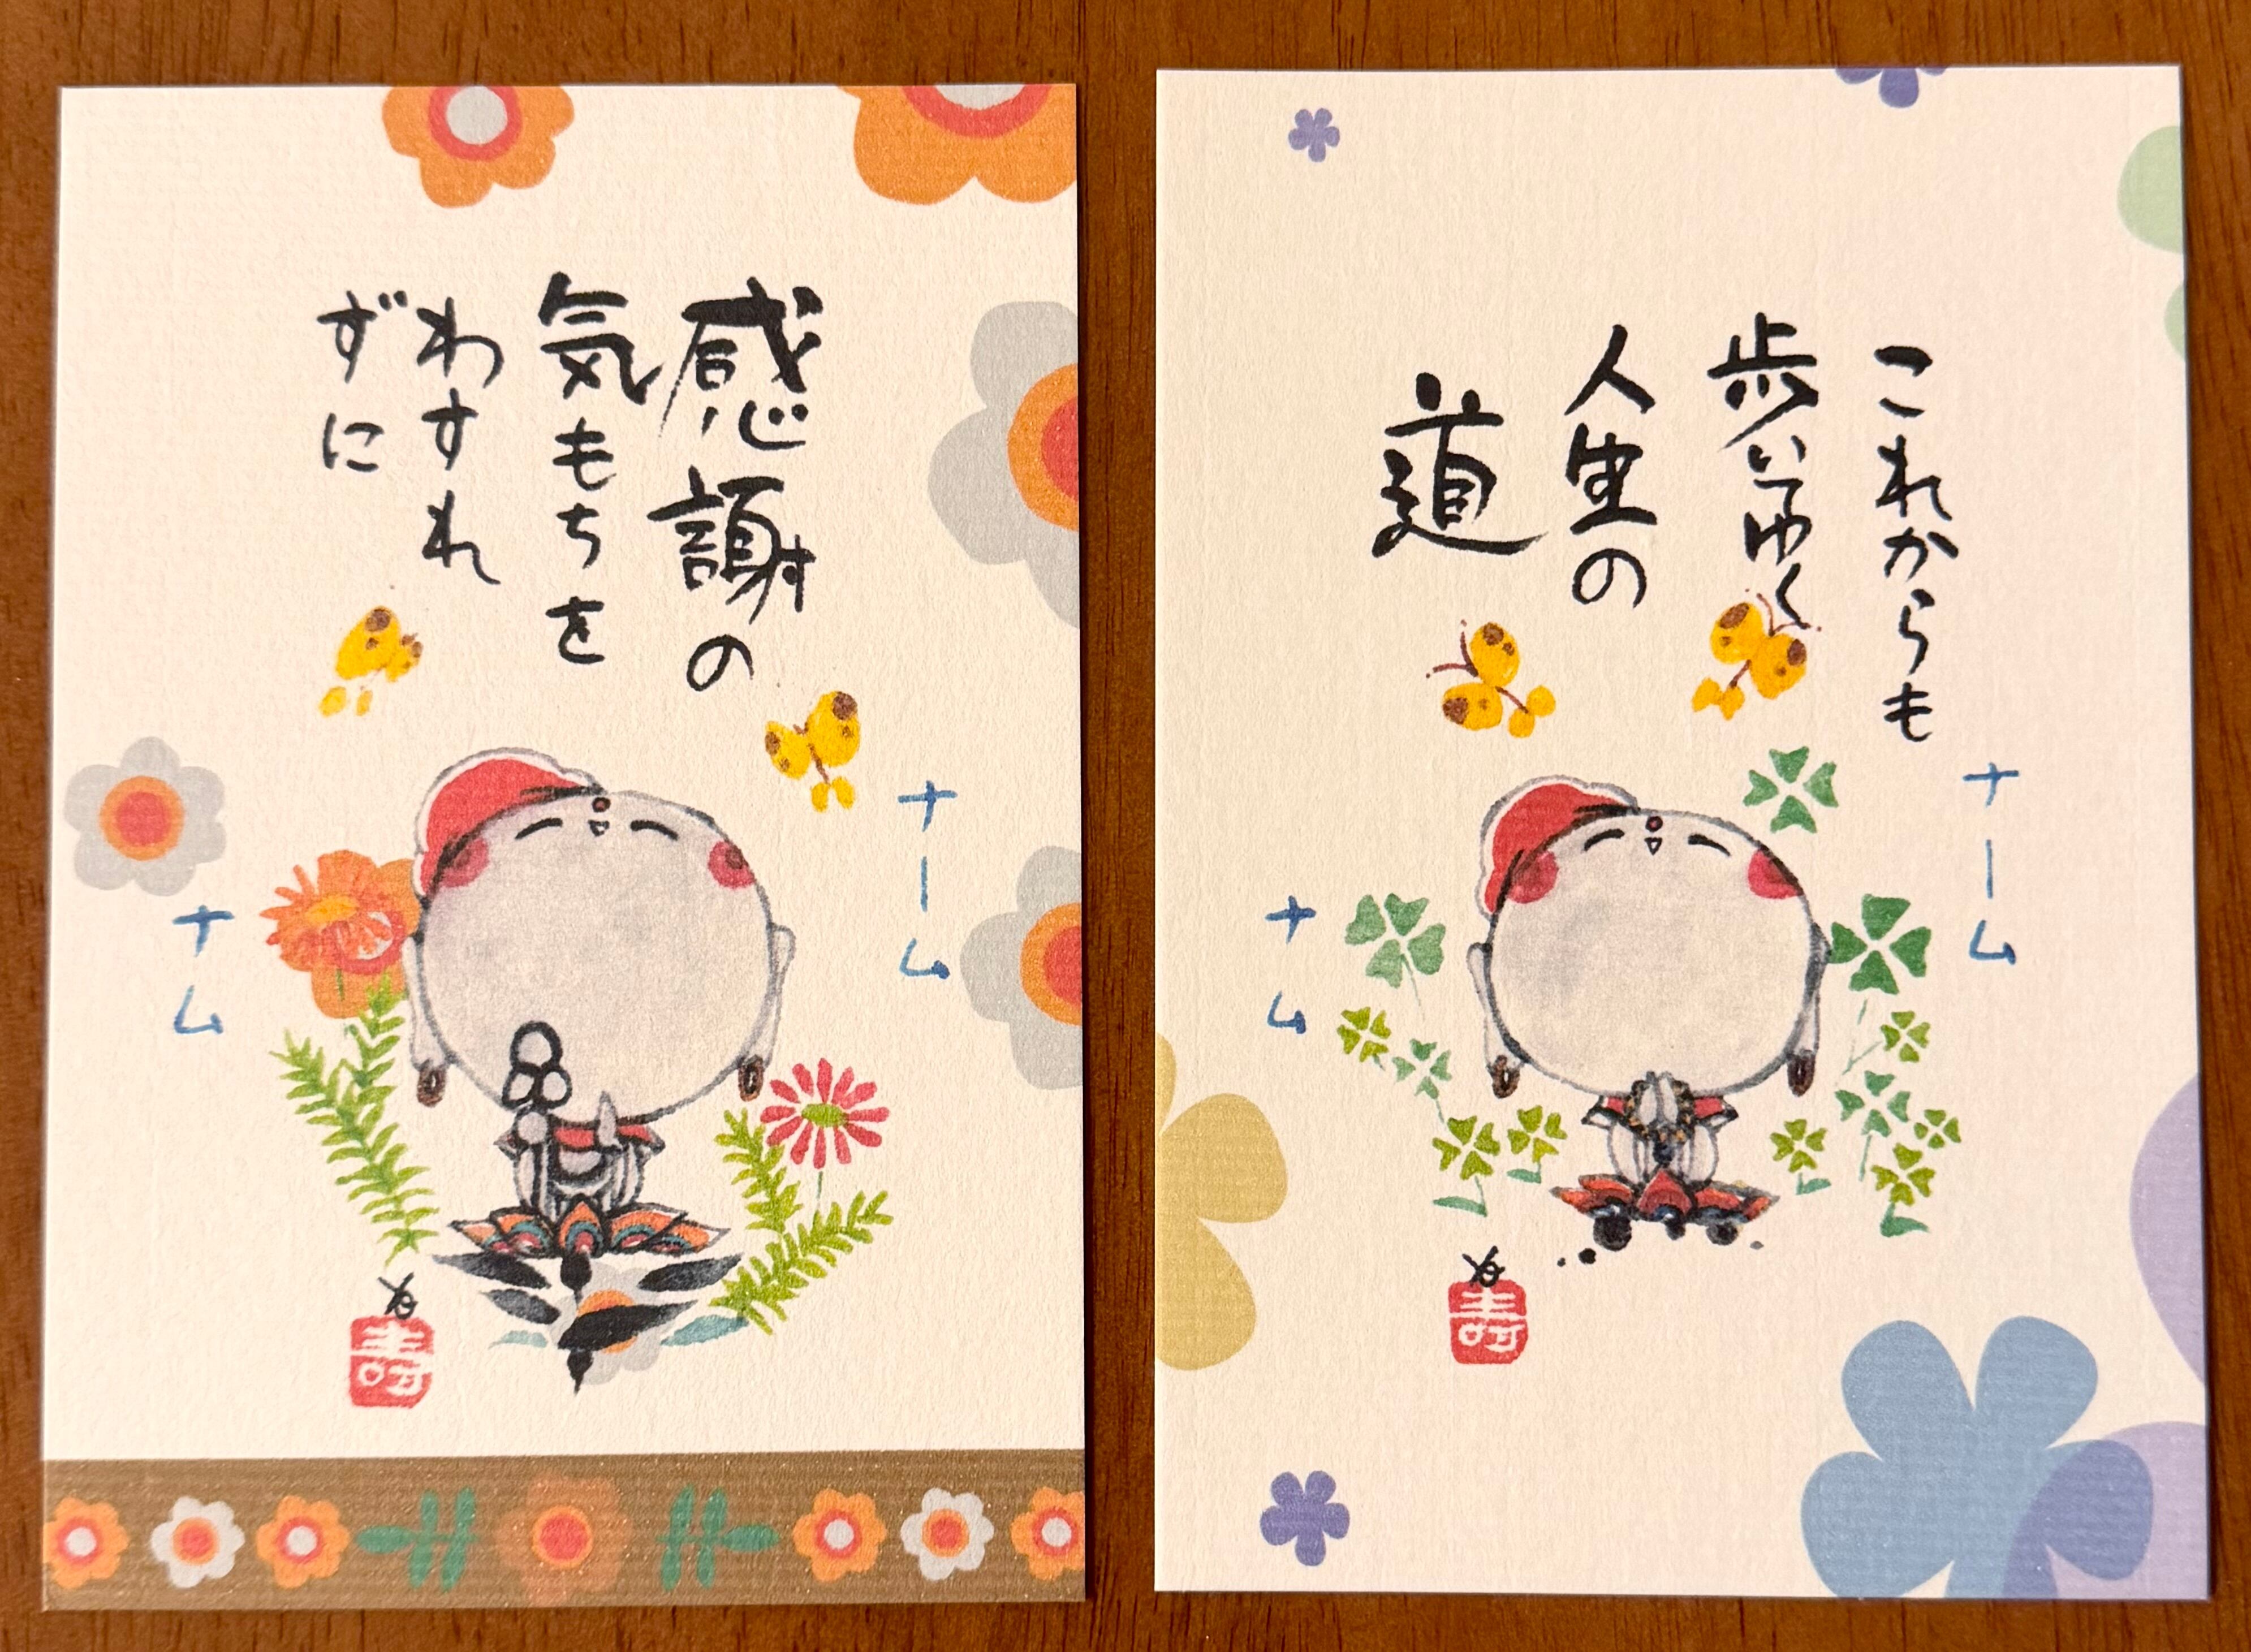 感謝の
気もちを
わすれ
ずに
ナーム
ナム
寿
これからも
歩いてゆく
人生の
道
ナーム
ナム
寿